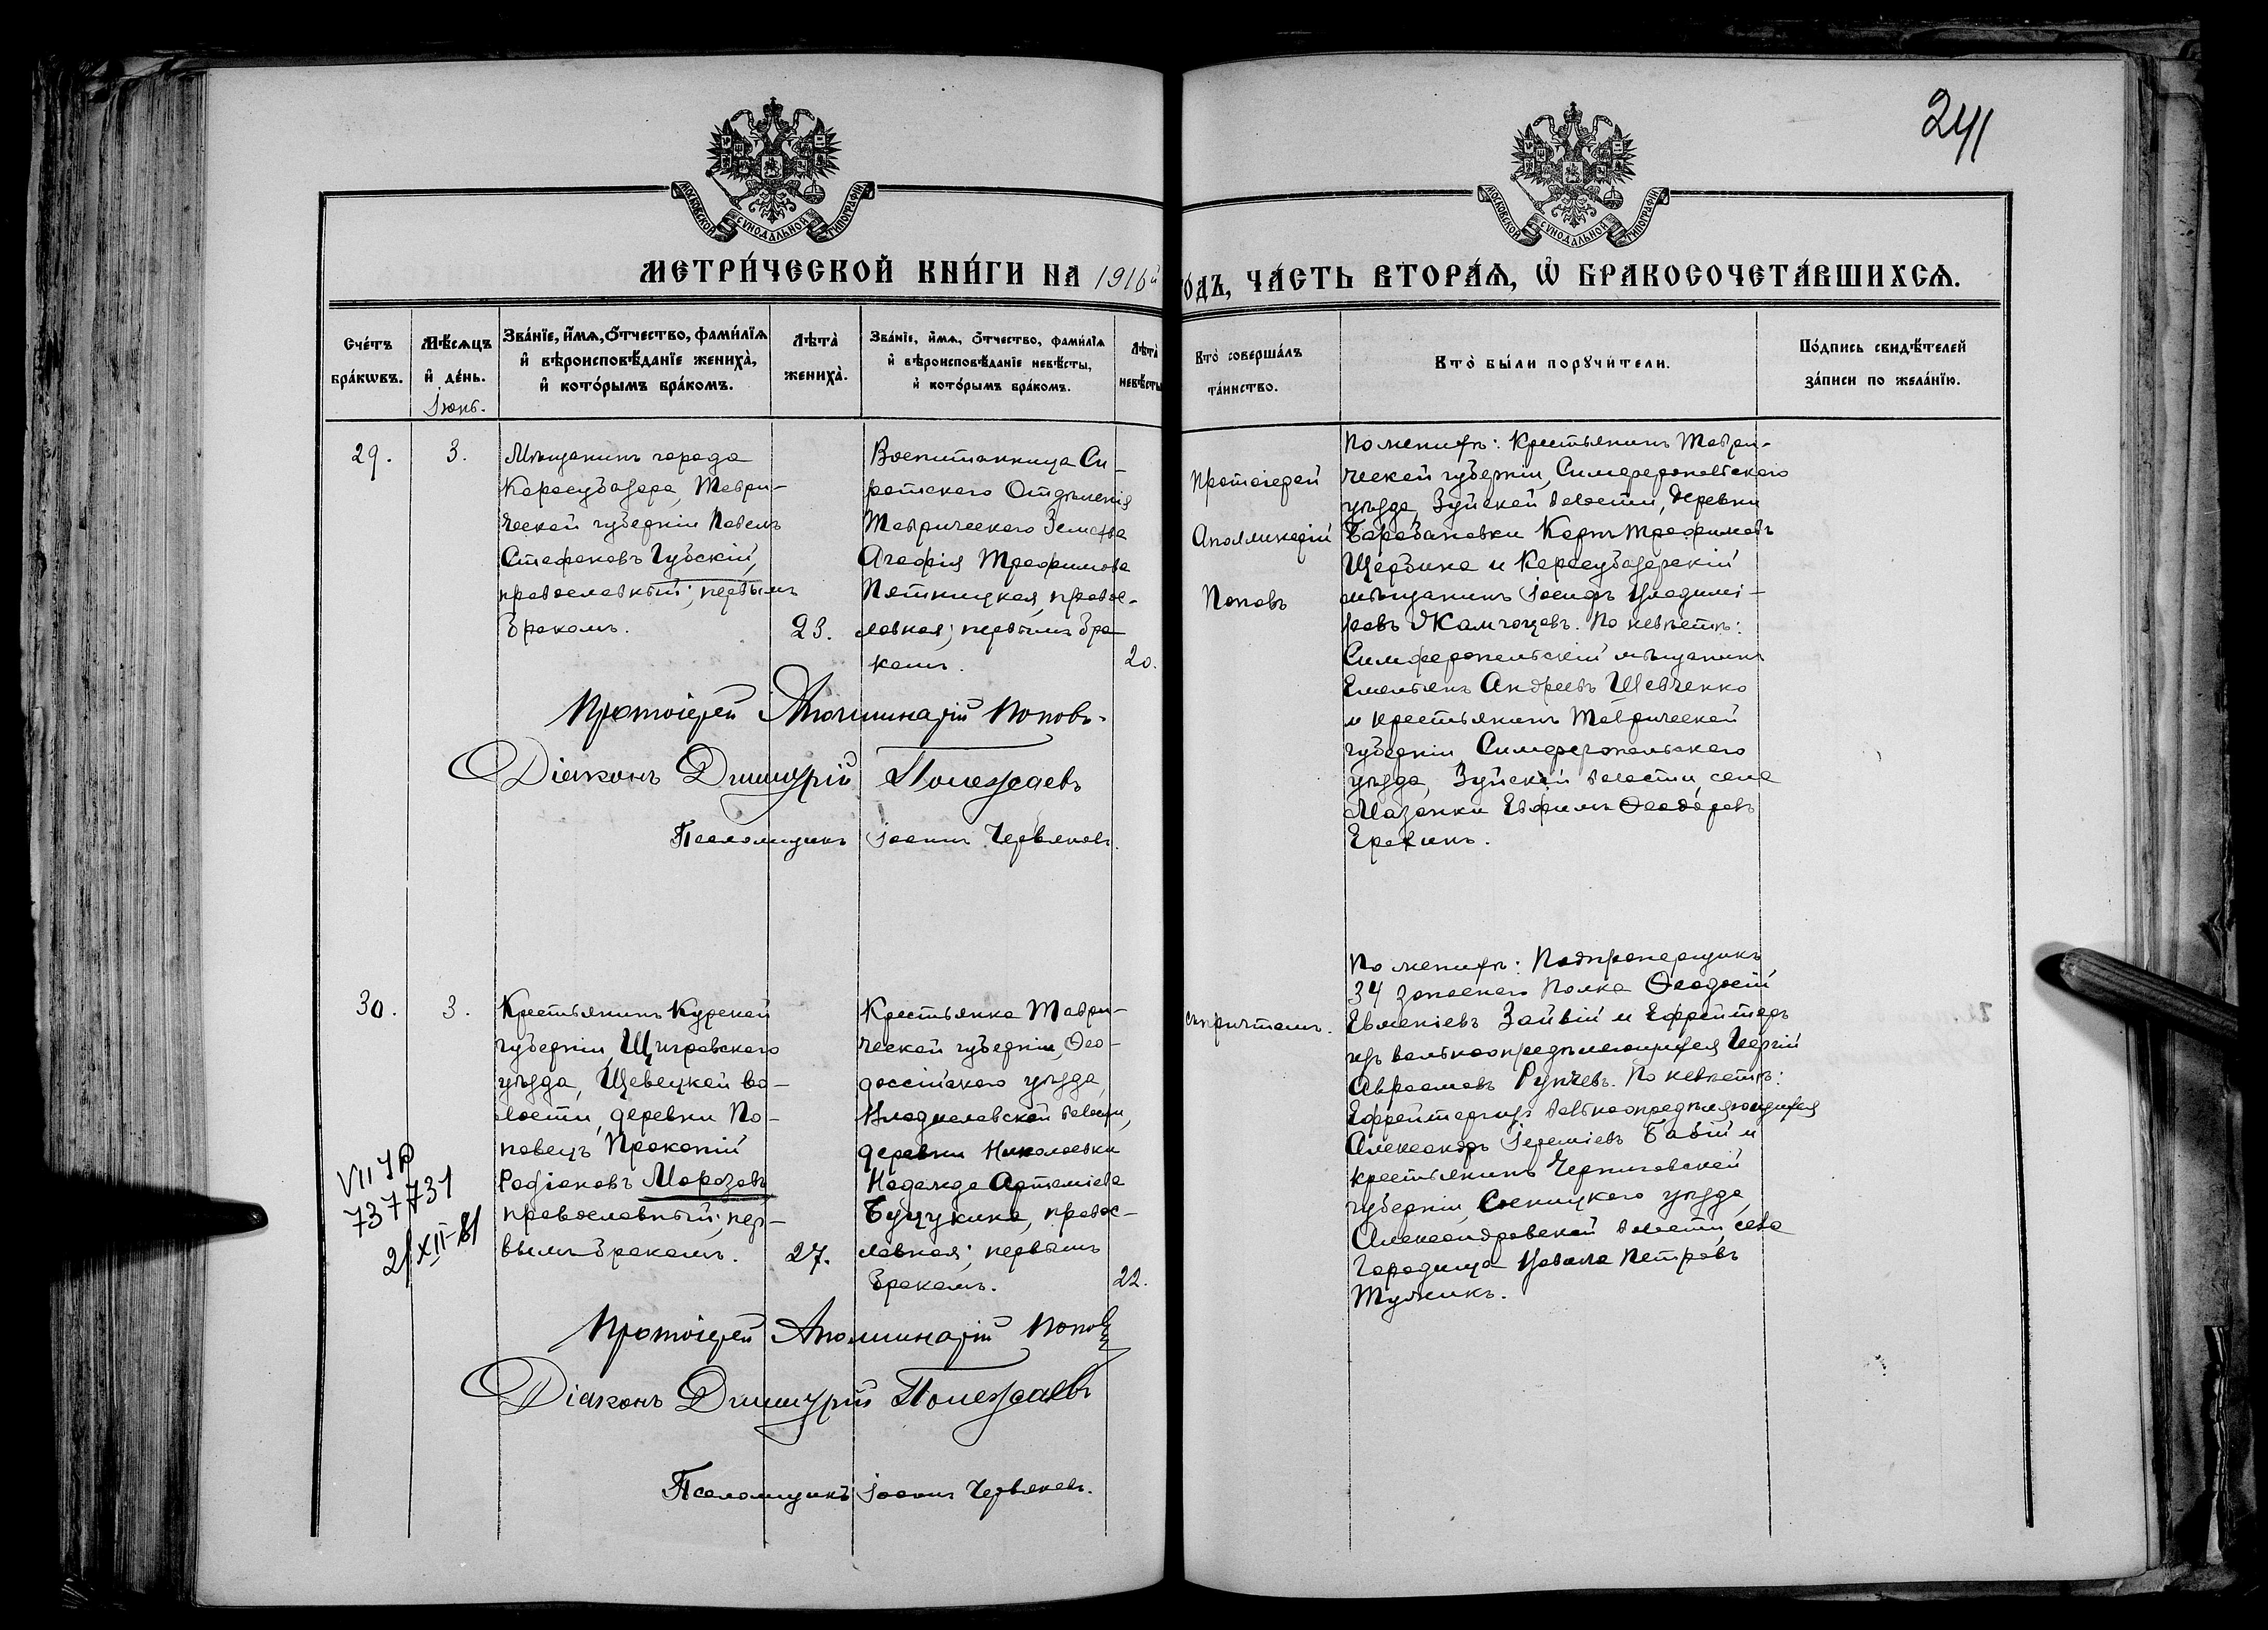 241
МОСКОВСКОЙ СѴНОДАЛЬНОЙ ТИПОГРАФІИ
МОСКОВСКОЙ СѴНОДАЛЬНОЙ ТИПОГРАФІИ
МЕТРИ́ЧЕСКОЙ КНИ́ГИ НА 1916й
ГО́ДЪ, ЧА́СТЬ ВТОРА́Ѧ, Ѽ БРАКОСОЧЕТА́ВШИХСѦ.
Сче́тъ
бра́кѡвъ.
Мѣ́сѧцъ
и҆ де́нь.
Іюнь.
Зва́нїе, и҆́мѧ, ѻ҆́тчество, фами́лїѧ
и҆ вѣроисповѣ́данїе жениха̀,
и҆ кото́рымъ бра́комъ.
Лѣ́та
жениха̀.
Зва́нїе, и҆́мѧ, ѻ҆́тчество, фами́лїѧ
и҆ вѣроисповѣ́данїе невѣ́сты,
и҆ кото́рымъ бра́комъ.
Лѣ́та
невѣ́сты
Кто̀ соверша́лъ
та́инство.
Кто̀ бы́ли порꙋчи́тели.
По́дпись свидѣ́телей
за́писи по жела́нїю.
29.
3.
Мѣщанинъ города
Карасубазара, Таври-
ческой губерніи Павелъ
Стефановъ Губскій,
православный; первымъ
бракомъ.
23.
Воспитанница Си-
ротскаго Отдѣленія
Таврическаго Земства
Агафія Трофимова
Пятницкая, правос-
лавная; первымъ бра-
комъ.
20.
Протоіерей
Аполлинарій
Поповъ
По женихѣ: Крестьянинъ Таври-
ческой губерніи, Симферопольскаго
уѣзда, Зуйской волости, деревни
Барабановки Карпъ Трофимовъ
Щербина и Карасубазарскій
мѣщанинъ Іосифъ Владимі-
ровъ Жамгоцевъ. По невѣстѣ:
Симферопольскій мѣщанинъ
Емельянъ Андреевъ Шевченко
и крестьянинъ Таврической
губерніи Симферопольскаго
уѣзда, Зуйской волости, села
Мазанки Евфимъ Ѳеодоровъ
Протоіерей Аполлинарій Поповъ.
Діаконъ Димитрій Полежаевъ
Псаломщикъ Іоаннъ Червяковъ.
30.
3.
Крестьянинъ Курской
губерніи, Щигровскаго
уѣзда, Щевецкой во-
лости, деревни По-
повецъ Прокопій
Родіоновъ Морозовъ
православный; пер-
вымъ бракомъ.
27.
Крестьянка Таври-
ческой губерніи, Ѳео-
доссійскаго уѣзда,
Владиславской волости,
деревни Николаевки
Надежда Артеміева
Буцукина, правос-
лавная; первымъ
бракомъ.
22.
съ причтомъ.
По женихѣ: Подпрапорщикъ
34 запаснаго полка Ѳеодосій
Евменіевъ Зайвій и Ефрейторъ
изъ вольноопредѣляющихся
Авраамовъ Рунчевъ. По невѣстѣ:
Ефрейторъ изъ вольноопредѣляющихся
Александръ Іереміевъ Бабій и
крестьянинъ Черниговской
губерніи, Сосницкаго уѣзда,
Александровской волости, села
Городища Павелъ Петровъ
VII ЯР
737731
21/XII-81
Протоіерей Аполлинарій Поповъ
Діаконъ Димитрій Полежаевъ
Псаломщикъ Іоаннъ Червяковъ.